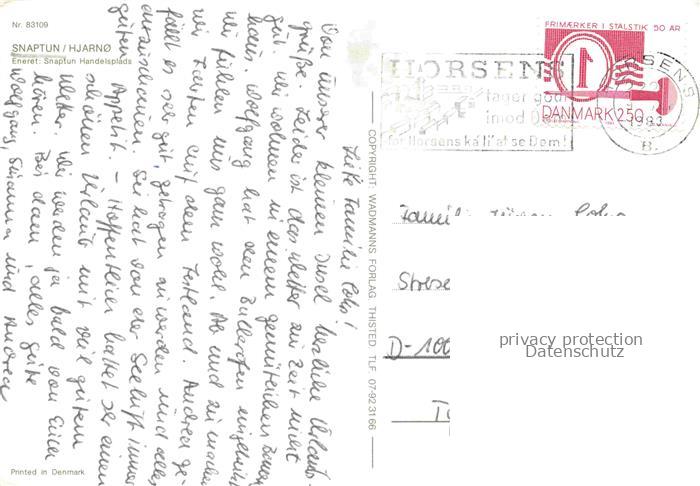 Nr. 83109
SNAPTUN / HJARNØ
Eneret: Snaptun Handelsplads
Liebe Familie Lohs!
Von unserer kleinen Insel herzliche Urlaubs-
grüße. Leider ist das Wetter zur Zeit nicht
gut. Wir wohnen in einem gemütlichen
haus. Wolfgang hat den Bullerofen
wir fühlen uns ganz wohl. Ab und zu machen
wir Fahrten auf dem Festland. Andrea ge-
fällt es sehr gut, getragen zu werden und alles
anzuschauen. Sie hat von der Seeluft immer
guten Appetit. – Hoffentlich hattet Ihr einen
schönen Urlaub mit viel gutem
Wetter. Wir werden ja bald von Euch
hören. Bis dann, alles gute
Wolfgang, Susanna und Andrea
Printed in Denmark
COPYRIGHT: WADMANNS FORLAG THISTED. TLF. 07-92 31 66
FRIMÆRKER I STÅLSTIK 50 ÅR
1
DANMARK 250
HORSENS
tager godt
imod D
for Horsens ka' li' at se Dem!
HORSENS
1983
B.
Familie Jürgen Lohs
Strese
D-100
privacy protection
Datenschutz